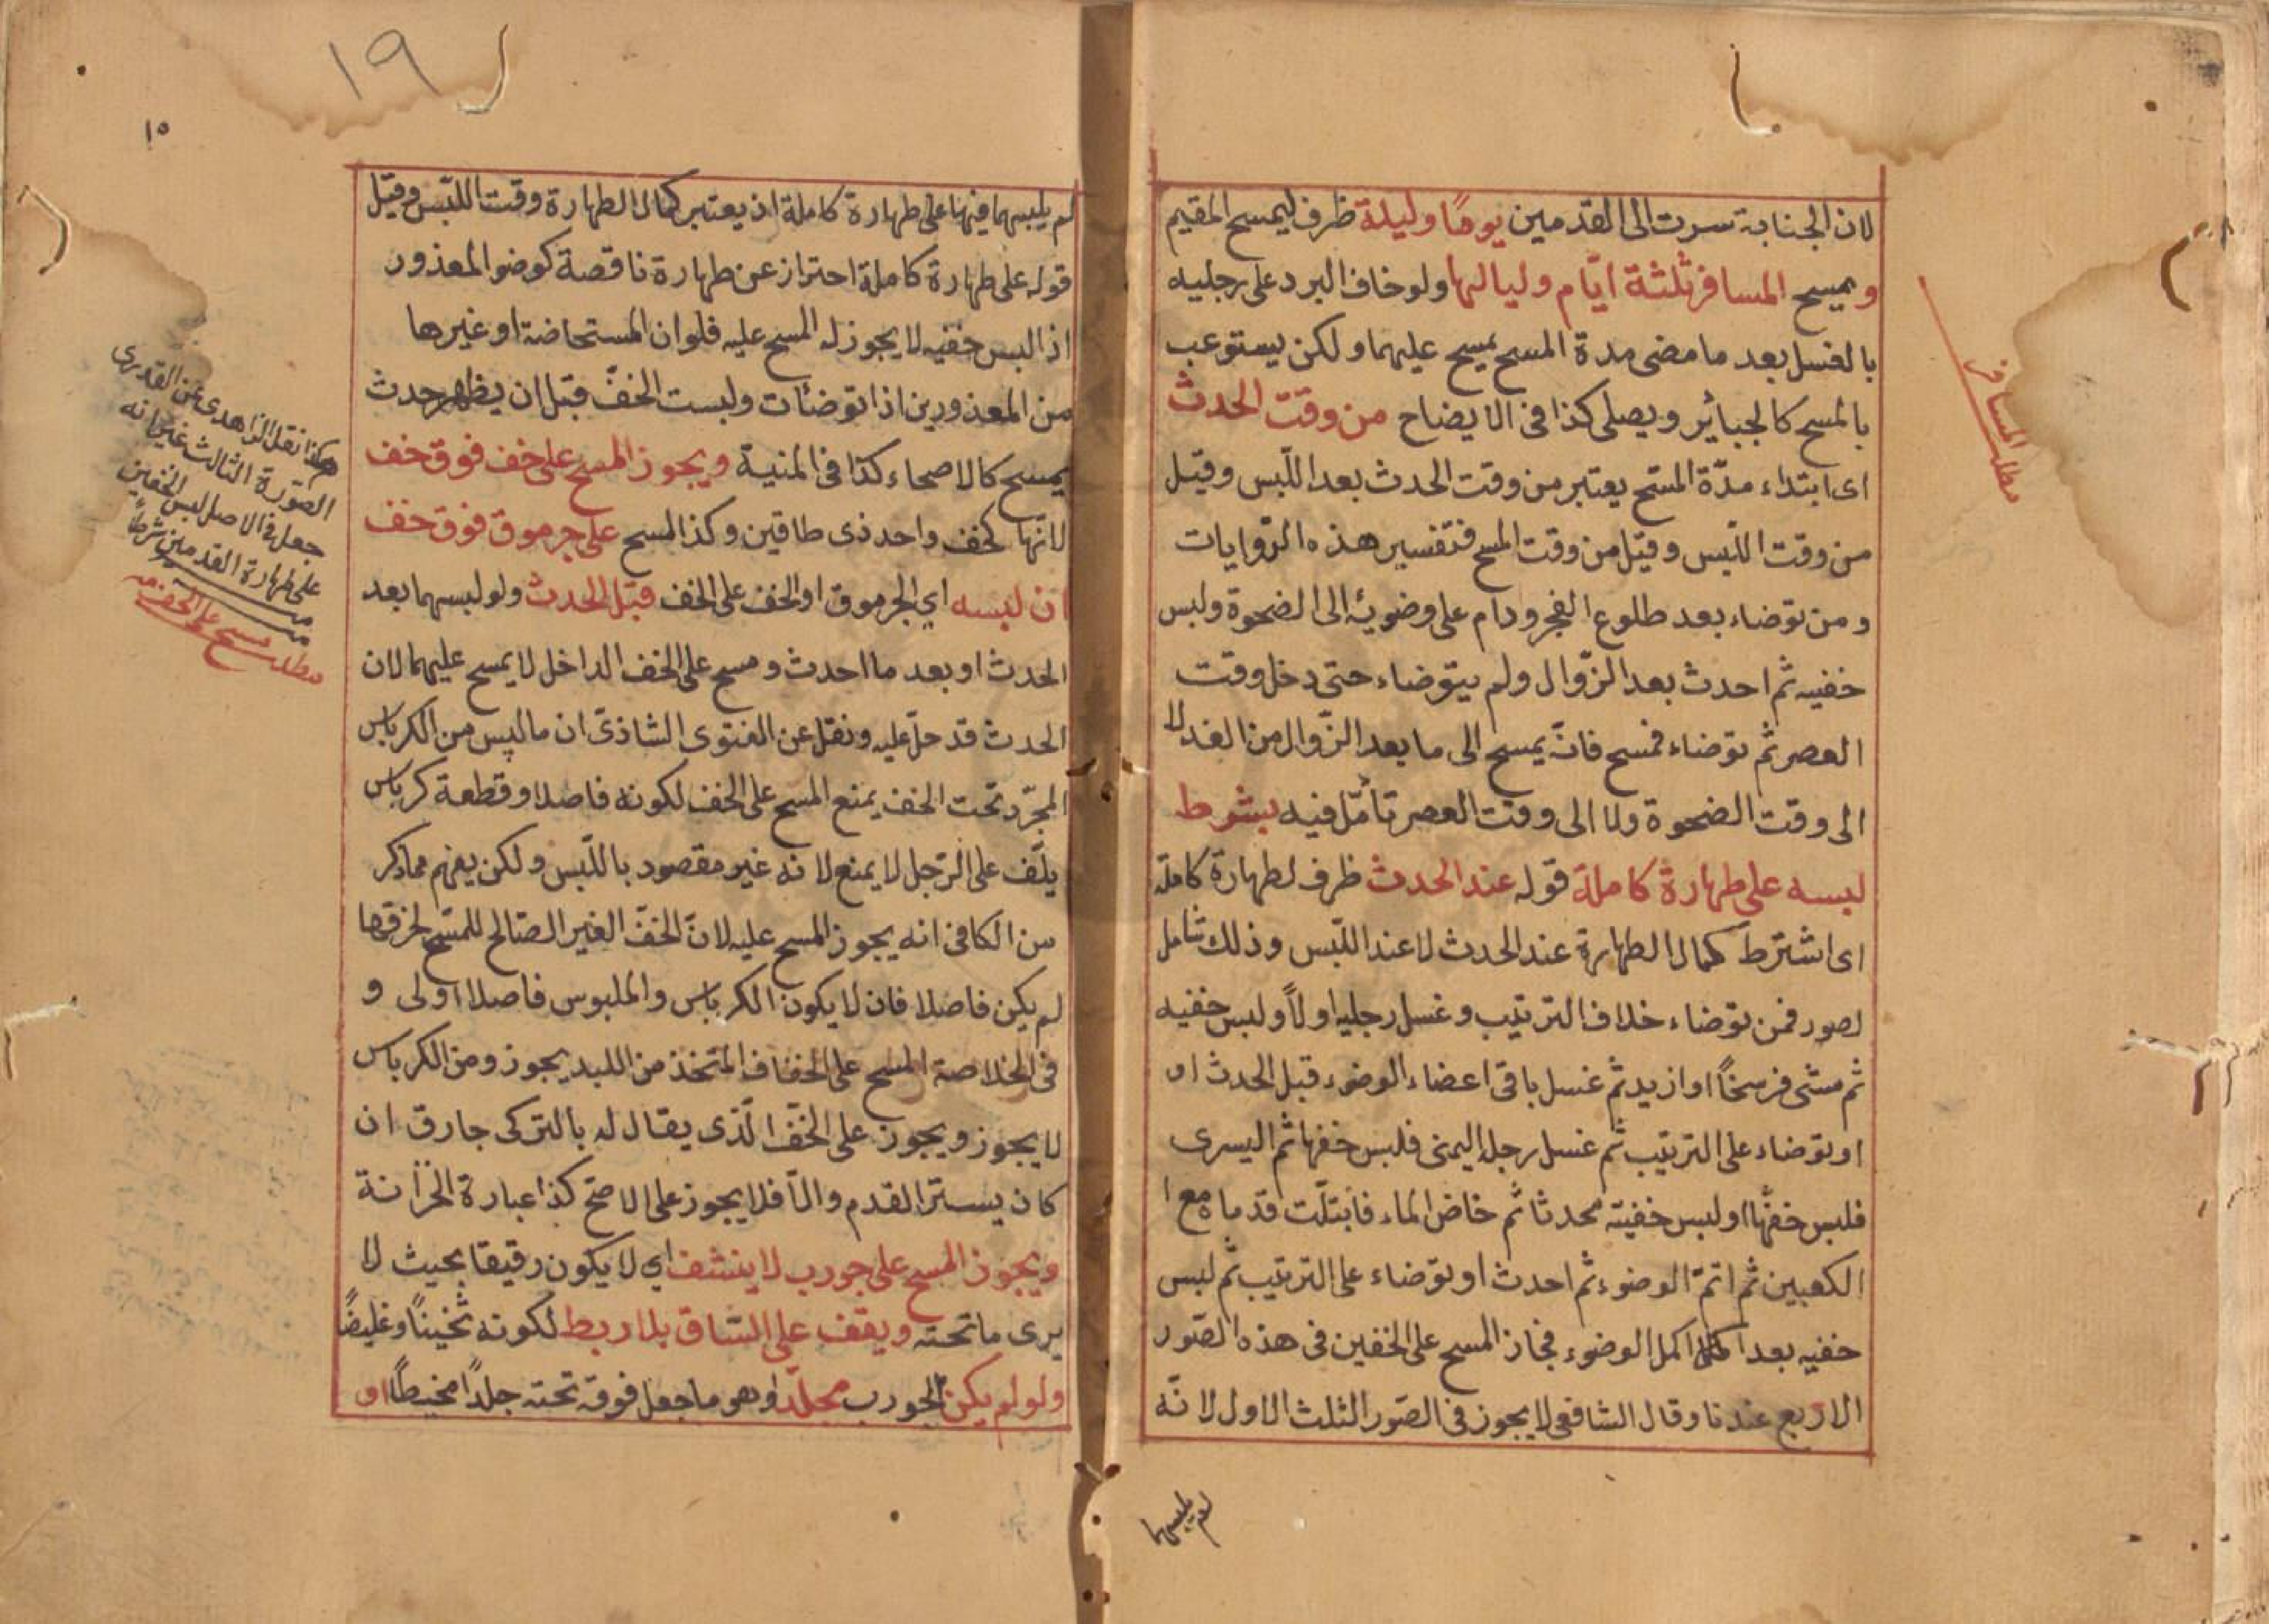 لان الجنابة سرت الى القدمين يومًا وليلة ظرف ليمسح المقيم
ويمسح المسافر ثلثة ايّام ولياليها ولو خاف البرد على رجليه
بالغسل بعد ما مضى مدة المسح يمسح عليهما ولكن يستوعب
بالمسح كالجبائر ويصلى كذا فى الايضاح من وقت الحدث
اى ابتداء مدّة المسح يعتبر من وقت الحدث بعد اللّبس وقيل
من وقت اللّبس وقيل من وقت المسح فتفسير هذه الرّوايات
ومن توضاء بعد طلوع الفجر ودام على وضوئه الى الضحوة ولبس
خفيه ثم احدث بعد الزّوال ولم يتوضاء حتى دخل وقت
العصر ثم توضاء فمسح فانّه يمسح الى ما بعد الزّوال من الغد لا
الى وقت الضحوة ولا الى وقت العصر تأمّل فيه بشرط
لبسه على طهارة كاملة قوله عند الحدث ظرف لطهارة كاملة
اى اشترط كمال الطهارة عند الحدث لا عند اللّبس وذلك شامل
لصور فمن توضاء خلاف الترتيب وغسل رجليه اولاً ولبس خفيه
ثم مشى فرسخًا او ازيد ثم غسل باقى اعضاء الوضوء قبل الحدث او
او توضاء على الترتيب ثم غسل رجله اليمنى فلبس خفها ثم اليسرى
فلبس خفّها او لبس خفيه محدثا ثم خاض الماء فابتلّت قدماه مع
الكعبين ثم اتمّ الوضوء ثم احدث او توضاء على الترتيب ثم لبس
خفيه بعد اكمل الوضوء فجاز المسح على الخفين فى هذه الصّور
الاربع عندنا وقال الشافعى لا يجوز فى الصّور الثلث الاول لانّه
لم يلبسهما
مطلب المسافر
١٩
١٥
لم يلبسهما فيها على طهارة كاملة اذ يعتبر كمال الطهارة وقت اللّبس وقيل
قوله على طهارة كاملة احتراز عن طهارة ناقصة كوضو المعذور
اذا لبس خفيه لا يجوز له المسح عليه فلو ان المستحاضة او غيرها
من المعذورين اذا توضئات ولبست الخفّ قبل ان يظهر حدث
يمسح كالاصحاء كذا فى المنية ويجوز المسح على خف فوق خف
لانّها كخف واحد ذى طاقين وكذا المسح على جرموق فوق خف
ان لبسه اي الجرموق او الخف على الخف قبل الحدث ولو لبسهما بعد
الحدث او بعد ما احدث ومسح على الخف الداخل لا يمسح عليهما لان
الحدث قد حلّ عليه ونقل عن الفتوى الشاذىّ ان ما لبس من الكرباس
المجرّد تحت الخف يمنع المسح على الخف لكونه فاصلا وقطعة كرباس
يلّف على الرّجل لا يمنع لانه غير مقصود باللّبس ولكن يفهم مما ذكر
من الكافى انه يجوز المسح عليه لانّ الخفّ الغير الصّالح للمسح لخرقها
لم يكن فاصلا فان لا يكون الكرباس والملبوس فاصلا اولى و
فى الخلاصة المسح على الخفاف المتخذ من اللبد يجوز ومن الكرباس
لا يجوز ويجوز على الخفّ الّذى يقال له بالتركى جارق ان
كان يستر القدم والاّ فلا يجوز على الاصحّ كذا عبارة الخزانة
ويجوز المسح على جورب لا ينشف اي لا يكون رقيقا بحيث لا
يرى ما تحته ويقف على السّاق بلا ربط لكونه ثخينًا وغليظًا
ولو لم يكن الجورب مجلّدا وهو ما جعل فوقه تحته جلدًا مخيطًا او
هكذا نقل الزاهدى عن القدورى
الصّورة الثالث غير انه
جعل فى الاصل لبس الخفين
على طهارة القدمين شرطاً
مطلب مسح على الخف